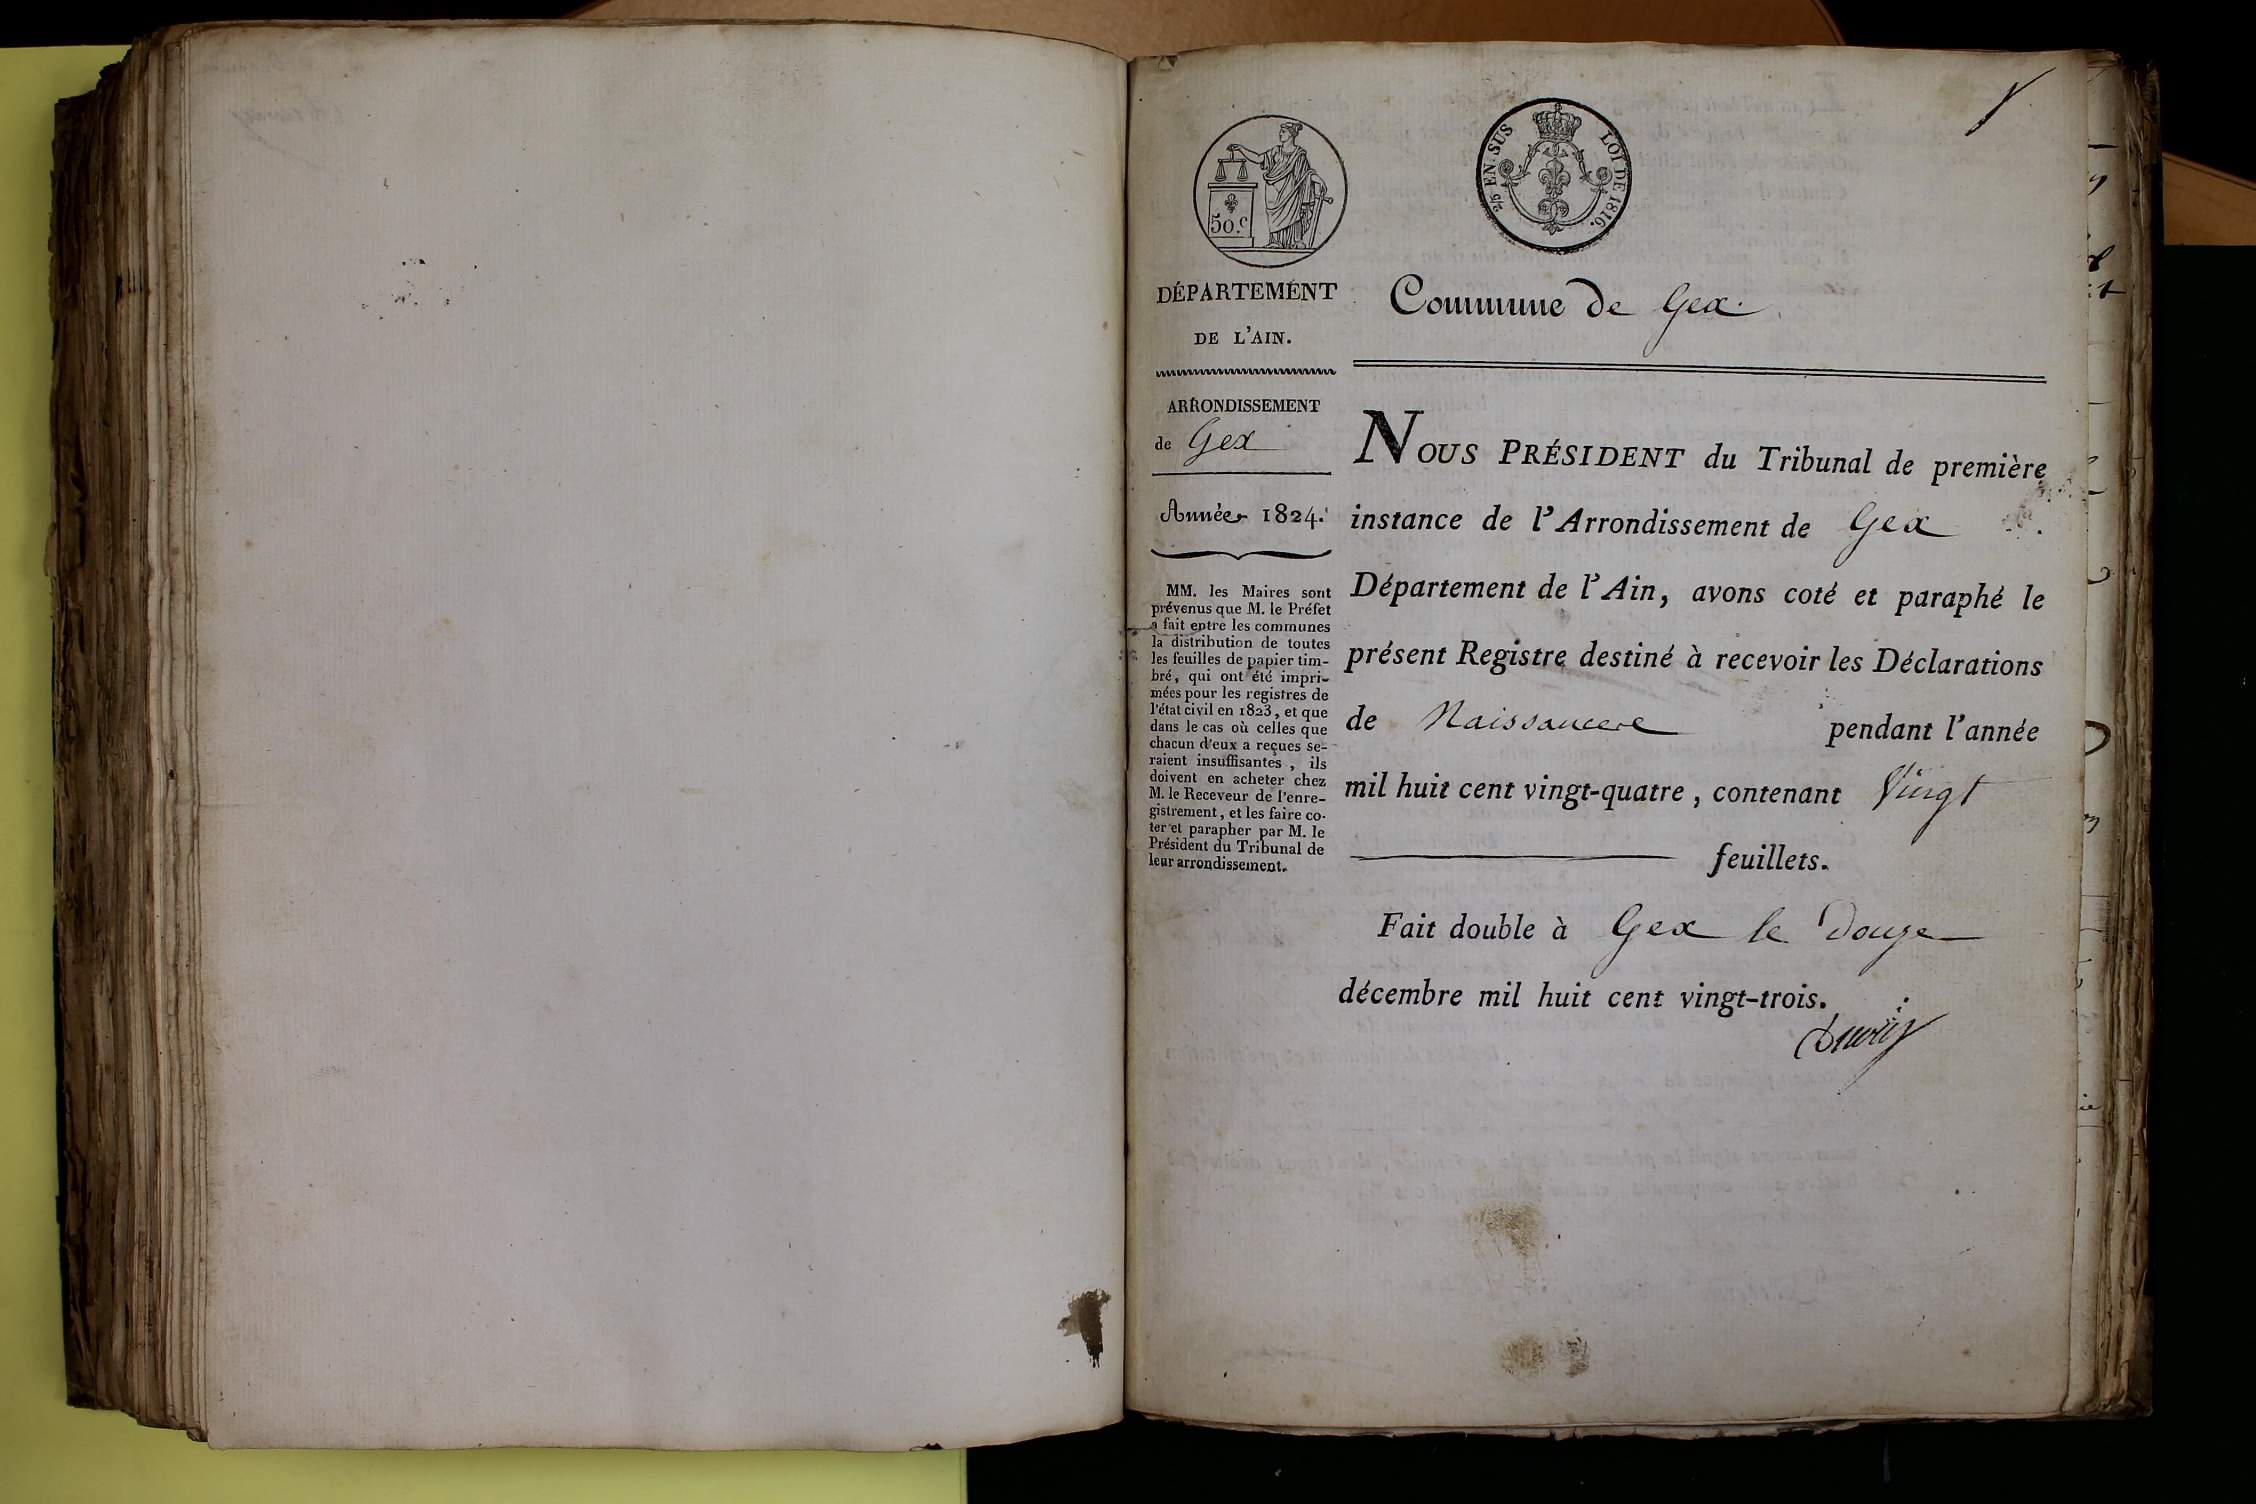 50.c
2/5 EN SUS
LOI DE 1816.
DÉPARTEMENT
DE L'AIN.
ARRONDISSEMENT
de Gex
Année 1824.
MM. les Maires sont
prévenus que M. le Préfet
a fait entre les communes
la distribution de toutes
les feuilles de papier tim-
bré, qui ont été impri-
mées pour les registres de
l'état civil en 1823, et que
dans le cas où celles que
chacun d'eux a reçues se-
raient insuffisantes, ils
doivent en acheter chez
M. le Receveur de l'enre-
gistrement, et les faire co-
ter et parapher par M. le
Président du Tribunal de
leur arrondissement.
Commune de Gex
NOUS PRÉSIDENT du Tribunal de première
instance de l'Arrondissement de Gex
Département de l'Ain, avons coté et paraphé le
présent Registre destiné à recevoir les Déclarations
de Naissances pendant l'année
mil huit cent vingt-quatre, contenant Vingt
feuillets.
Fait double à Gex le Douze
décembre mil huit cent vingt-trois.